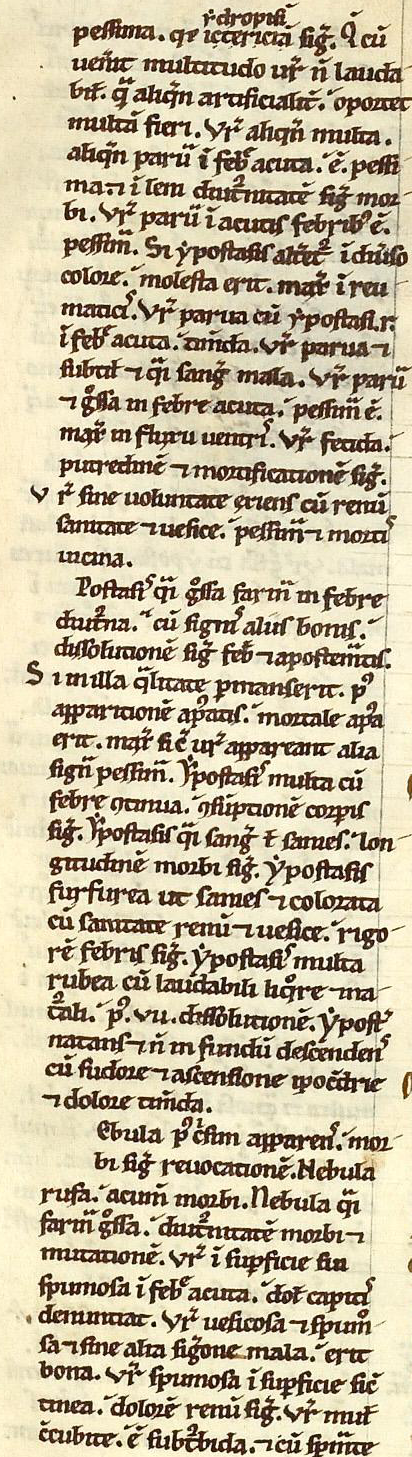 ydropisi
pessima. qr ictericia sig̃. Q̃ cũ
uen̄it multitudo ur̃ ñ lauda
bil̃. q̃ aliqñ artificialit̃. oportet
multã fieri. Vr̃ aliqñ multa.
aliqñ parũ ĩ feb᷒ acuta. ẽ. pessi
ma ⁊ ĩ lem diut̃nitatẽ sig̃ mor
bi. Vr̃ parũ ĩ acutis febrib᷒ ẽ.
pessim̃. Si ypostasis alt̃et᷑ ĩ diũso
colore. molesta erit. max̃ ĩ reu
maticĩ. Vr̃ parua cũ ypostasi.r̃.
ĩ feb᷒ acuta. tim̃da. Vr̃ parua ⁊
subtil̃ ⁊ q̃i sang̃ mala. Vr̃ parũ
⁊ g̊ssa in febre acuta. pessim̃ ẽ.
max̃ in fluxu uentrĩ. Vr̃ fetida.
putredinẽ ⁊ mortificationẽ sig̃.
V r̃ sine uoluntate exiens cũ renũ
sanitate ⁊ uesice. pessim̃ ⁊ mortĩ
uicina.
Postasĩ q̃i g̊ssa farin̄ in febre
diut̃na. cũ signĩ aliis bonis.
dissolutionẽ sig̃ feb᷒ ⁊ apostem̃tis.
S i in illa q̃litate p̃manserit. p᷒
apparitionẽ ap̃atis. mortale ap̃a
erit. max̃ sic̃ ur̃ appareant alia
sign̄ pessim̃. Ypostasĩ multa cũ
febre ꝯtinua. ꝯsũptionẽ corp̃is
sig̃. Ypostasis q̃i sang̃ ł sanies. lon
gitudinẽ morbi sig̃. ypostasis
furfurea ut sanies ⁊ colorata
cũ sanitate renũ ⁊ uesice. rigo
rẽ febris sig̃. ypostasĩ multa
rubea cũ laudabili liq̊re ⁊ ma
t̃ali. p᷒. vii. dissolutionẽ. Ypost᷒
natans ⁊ ñ in fundũ descendeñ
cũ sudore ⁊ ascensione ipoc̃drie
⁊ dolore tim̃da.
Ebula p᷒ c̃sim appareñ. mor
bi sig̃ reuocationẽ. Nebula
rufa. acum̃ morbi. Nebula q̃i
farin̄ g̊ssa. diut̃nitatẽ morbi ⁊
mutationẽ. Vr̃ ĩ sup̃ficie sui
spumosa ĩ feb᷒ acuta. dol̃ capitĩ
denuntiat. Vr̃ uesicosa ⁊ spum̊
sa ⁊ sine alia sig̃one mala. erit
bona. Vr̃ spumosa ĩ sup̃ficie sic̃
tinea. dolorẽ renũ sig̃. Vr̃ mul̃
c̃cubite. ẽ subt̃bida. ⁊ cũ spm̃te